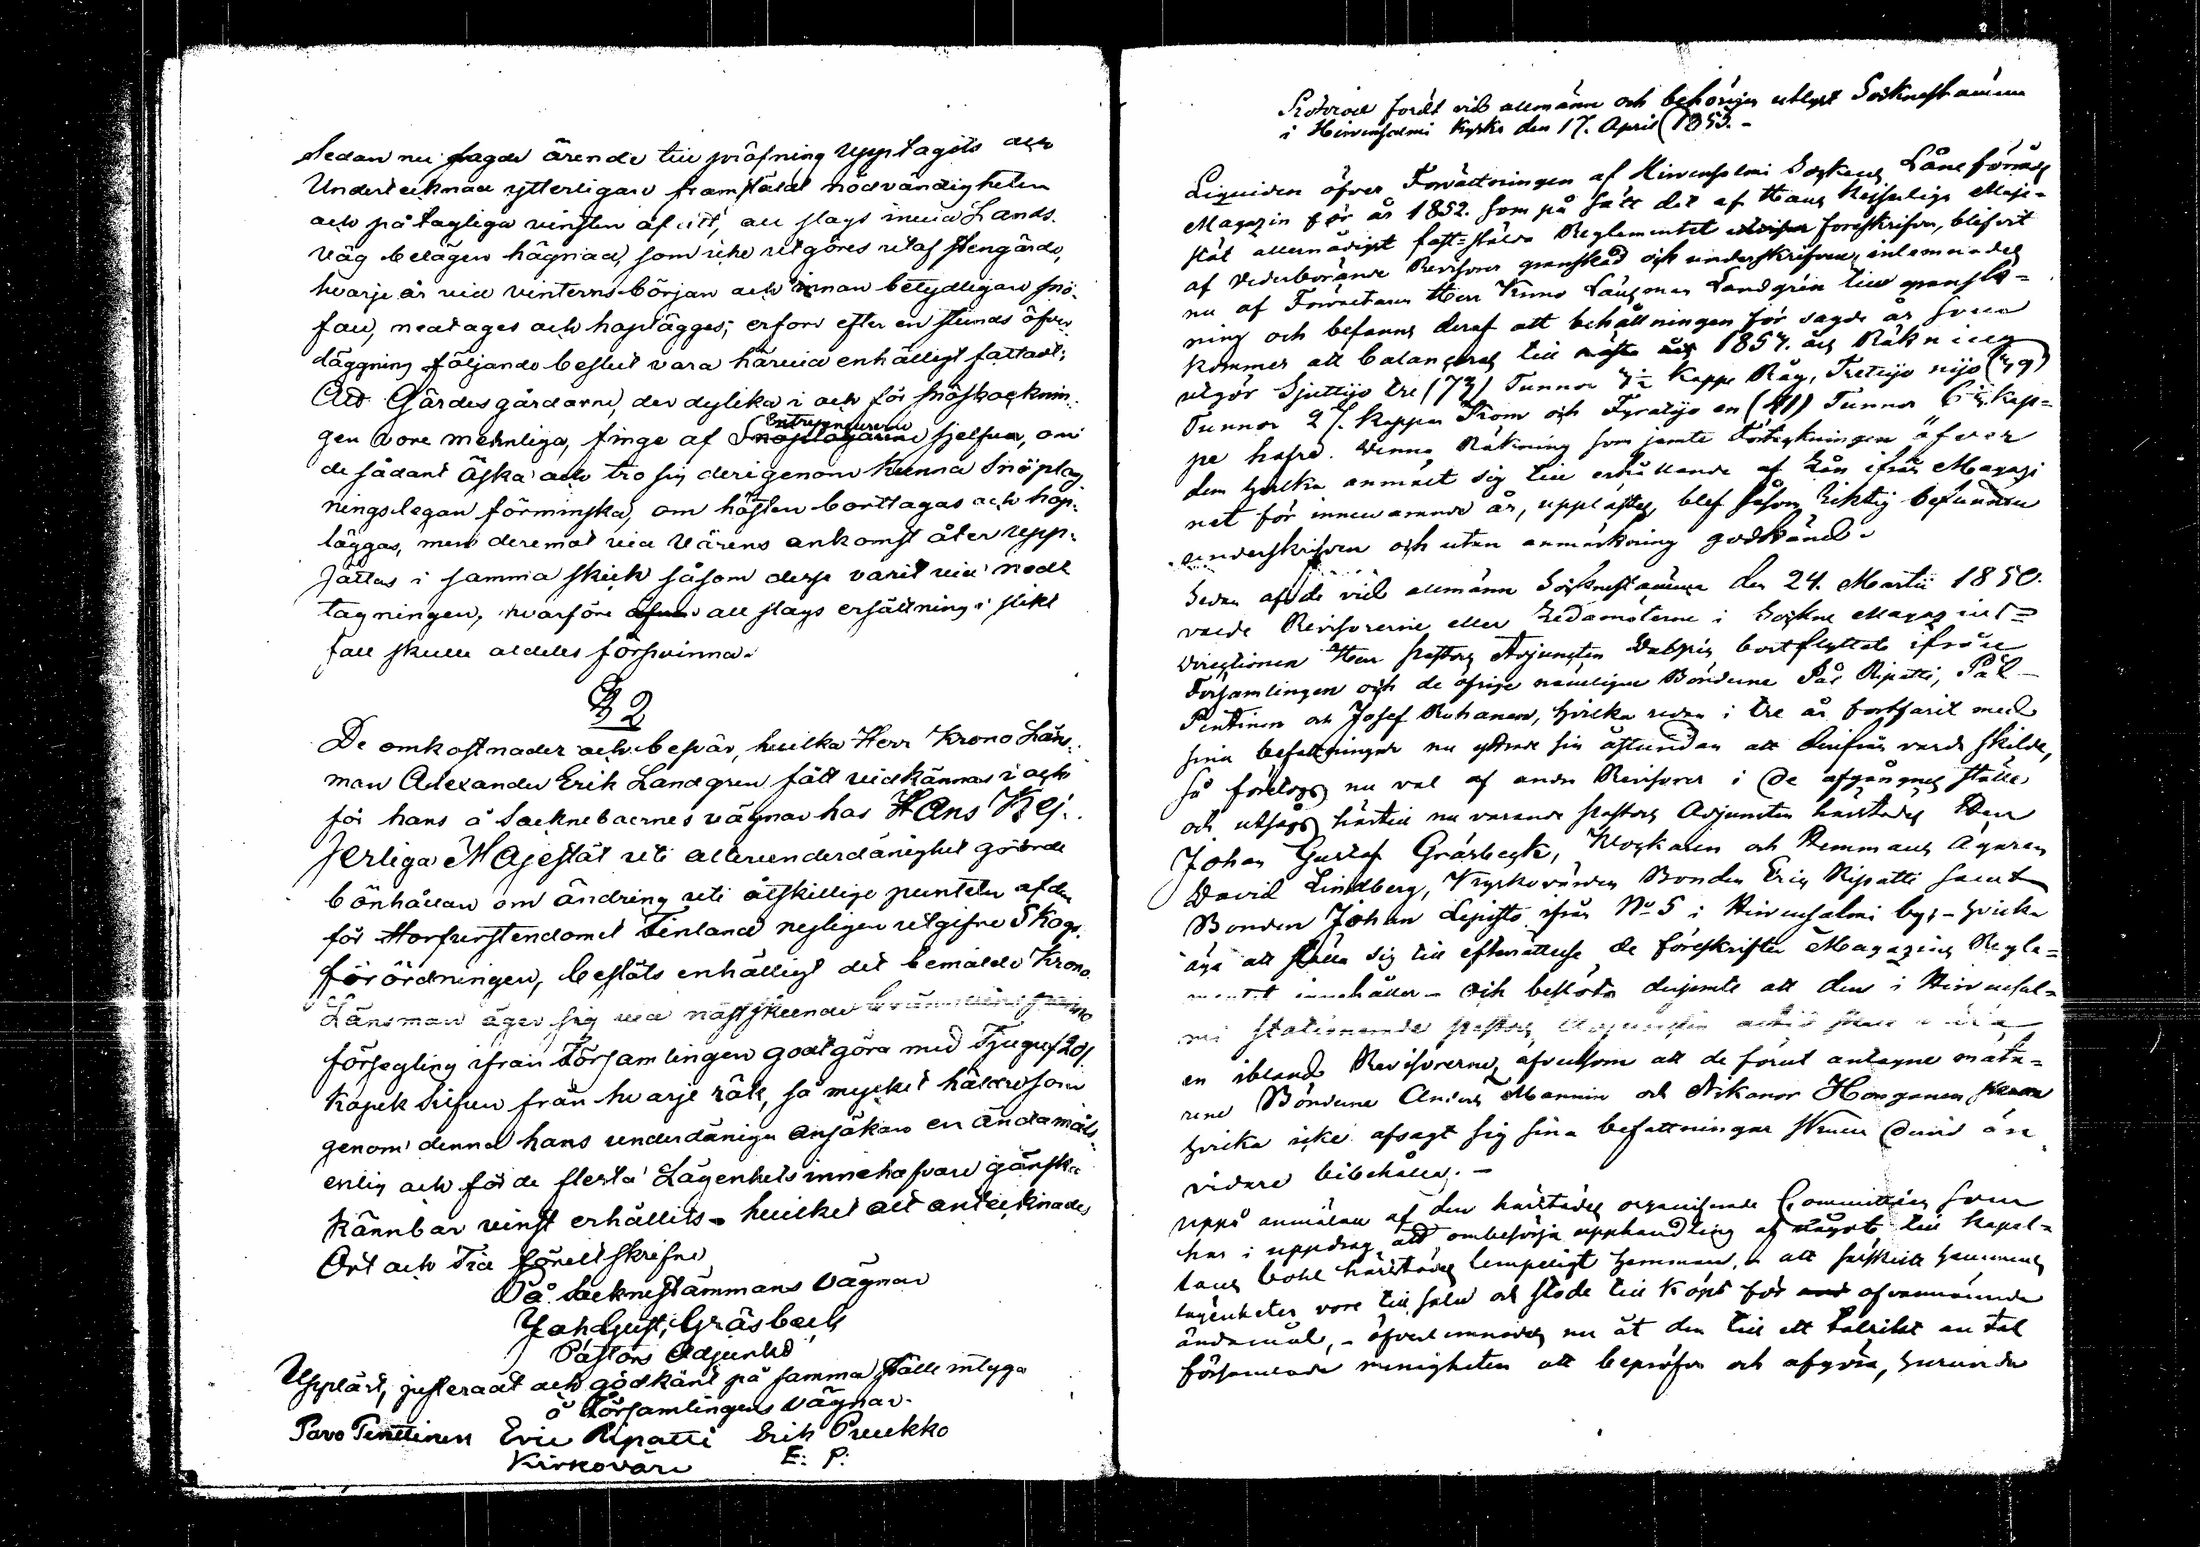 Sedan nu sagde ärende till pröfning upptagits och
Undertecknad ytterligare framstäldt nödvändigheten
och påtagliga vinsten af att, all slags invid Lands-
väg belägen hägnad, som icke utgöres utaf Stengärde,
hvarje år vid vinterns början och innan betydligare snö-
fall, nedtages och hoplägges; erfors efter en stunds öfver-
läggning följande beslut vara härvid enhälligt fattadt;
Att Gärdesgårdarne, der dylika i och för snöskottnin-
gen vore menliga, finge af Entrepreneurerne Snöplogarene sjelfva, om
de sådant äska och tro sig derigenom kunna Snöplog-
ningslegan förminska, om hösten borttagas och hop-
läggas, men deremot vid Vårens ankomst åter upp-
sättas i samma skick såsom desse varit vid ned-
tagningen, hvarföre äfven all slags ersättning i slikt
fall skulle aldeles försvinna.
§ 2
De omkostnader och besvär, hvilka Herr Krono Läns-
man Alexander Erik Landgren fått vidkännas i och
för hans å Sockneboernes vägnar hos Hans Kej-
serliga Majestät uti allerunderdånighet gjorde
bönhållan om ändring uti åtskillige puncter af den
för Storfurstendömet Finland nyligen utgifne Skogs-
förordningen, beslöts enhälligt det bemälde Krono
Länsman äger sig vid nästskeende
försegling ifrån Församlingen godtgöra med Tjugu (20)
Kopek Silfver från hvarje rök, så mycket häldre som
genom denna hans underdåniga ansökan en ändamåls-
enlig och för de flesta Lägenhets innehafvare ganska
kännbar vinst erhållits - hvilket allt antecknades
Ort och Tid förutskrifne
På Socknestämmans Vägnar
Joh Gust. Gråsbeck
Pastors Adjunkt
Uppläst, justeradt och godkänt på samma ställe intyga
å Församlingens Vägnar.
Pavo Penttinen Eric Ripatti Erik Pruukko
Kirkovari E: P:
Protocoll fördt vid allmänn och behörigen utlyst Socknestämma
i Hirvensalmi kyrka den 17. April 1853. -
Liquiden öfver Förvaltningen af Hirvensalmi Sockens Låneförråds
Magazin för år 1852. som på sätt det af Hans Kejserliga Maje-
stät allernådigst fast-stälda Reglementet föreskrifver, blifvit
af vederbörande Revisorer granskad och underskrifven, inlemnades
nu af Förvaltaren Herr Krono Länsman Landgren till gransk-
ning och befanns deraf att behållningen för sagde år som
kommer att balanceras till 1854. års Räkning
utgör Sjuttijo tre (73) Tunnor 7½ Kappe Råg, Trettijo nijo (39)
Tunnor 2 Kappar Korn och Fyratijo en (41) Tunnor 6 Kap-
pe hafre. Denna Räkning som jemte Förteckningen öfver
dem hvilka anmält sig till erhållande af Lån ifrån Magazi
net för innevarande år, upplästes, blef såsom riktig befunnen
underskrifven och utan anmärkning godkänd.
Sedan af de vid allmänn Socknestämma den 24. Martii 1850.
valde Revisorerne eller Ledamöterne i Sockne Magazins-
Directionen Herr Pastors Adjuncten bortflyttat ifrån
Församlingen och de öfrige nämligen Bönderne Pål Ripatti, Pål
Penttinen och Josef Ruhanen, hvilka redan i tre år fortfarit med
sina befattningar nu yttrade sin åstundan att derifrån varda skilde,
så företogs nu val af andre Revisorer i de afgångnes ställe
och utsågs härtill nu varande Pastors Adjuncten härstädes Herr
Johan Gustaf Gråsbeck, Klockaren och Hemmans Ägaren
David Lindberg, Kyrkovärden Bonden Eric Ripatti samt
Bonden Johan Lepistö ifrån No 5 i Hirvensalmi by, - hvilka
äga att ställa sig till efterrättelse de föreskrifter Magazins Regle-
mentet innehåller - och beslöts derjemte att den i Hirvensal-
mi stationerade Pastors Adjuncten alltid skall vara
en ibland Revisorerne, äfvensom att de förut antagne mäta-
rene Bönderne Anders Manninen och Nikanor Hongonen
hvilka icke afsagt sig sina befattningar skulle dervid än
vidare bibehållas. -
Uppå anmälan af den härstädes organiserade Committéen som
har i uppdrag att ombesörja upphandling af något till Kapel-
lans bohl härstädes lempeligt hemman, att särskilda hemmans
lägenheter vore till salu och stode till köps för ofvannämnde
ändamål, - öfverlemnades nu åt den till ett talrikt antal
församlade menigheten att bepröfva och afgöra, huruvida